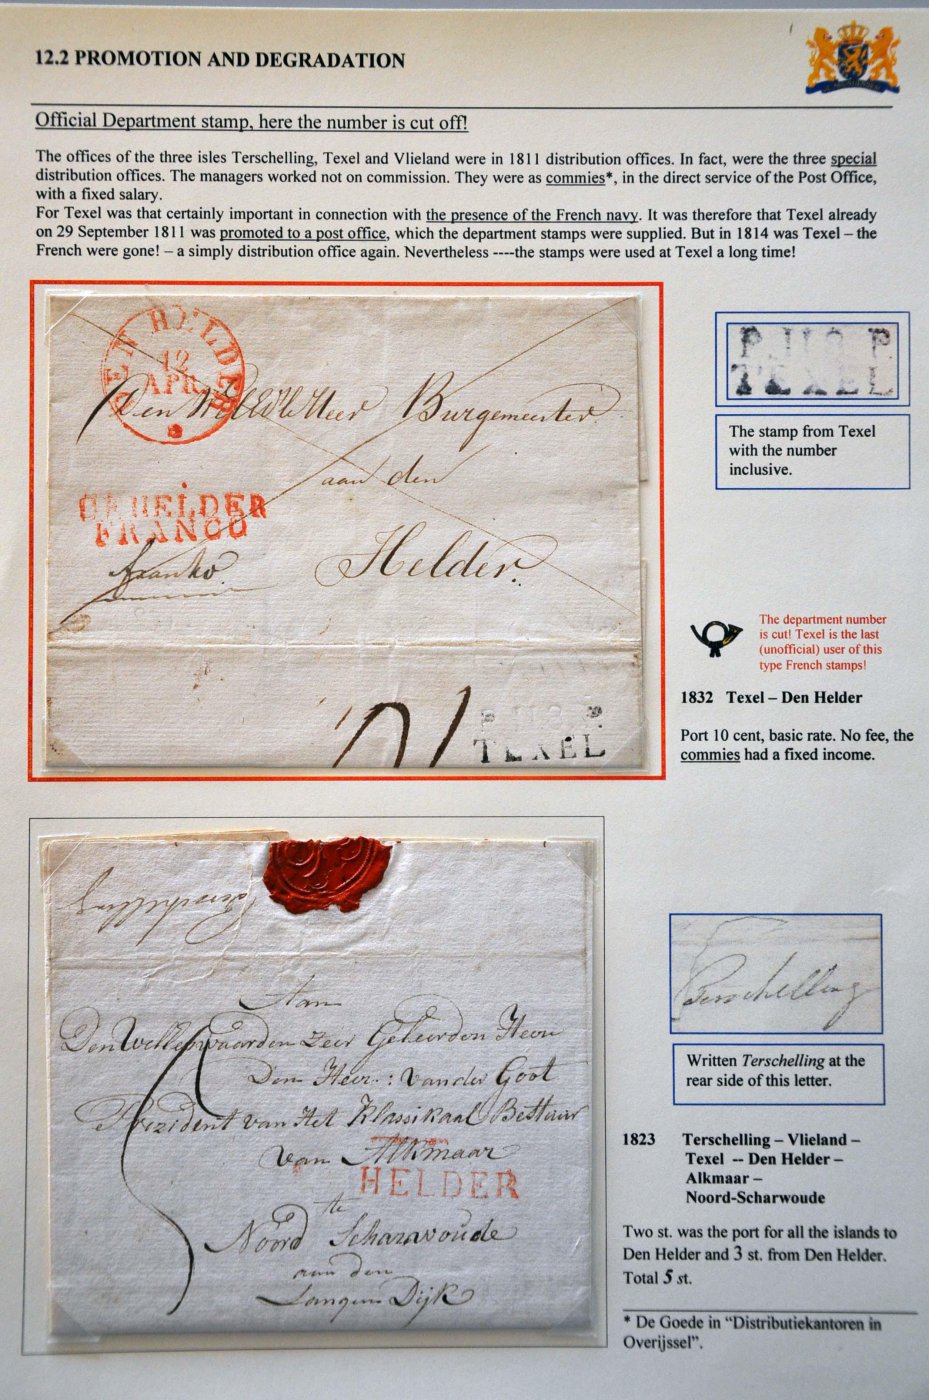 12.2 PROMOTION AND DEGRADATION
Official Department stamp, here the number is cut off!
The offices of the three isles Terschelling, Texel and Vlieland were in 1811 distribution offices. In fact, were the three special
distribution offices. The managers worked not on commission. They were as commies*, in the direct service of the Post Office,
with a fixed salary.
For Texel was that certainly important in connection with the presence of the French navy. It was therefore that Texel already
on 29 September 1811 was promoted to a post office, which the department stamps were supplied. But in 1814 was Texel – the
French were gone! – a simply distribution office again. Nevertheless ----the stamps were used at Texel a long time!
DEN HELDER
12
APR
Den WelEdle Heer Burgemeester
aan den
HELDER
FRANCO
Helder.
franko.
P.118.P
TEXEL
P.118.P
TEXEL
The stamp from Texel
with the number
inclusive.
The department number
is cut! Texel is the last
(unofficial) user of this
type French stamps!
1832 Texel – Den Helder
Port 10 cent, basic rate. No fee, the
commies had a fixed income.
Terschelling
Aan
Den WelEerwaarden zeer Geleerden Heer
Den Heer : van der Goot
Prezident van Het Klassikaal Bestuur
van Alkmaar
HELDER
te
Noord Scharwoude
aan den
Langen Dijk
Terschelling
Written Terschelling at the
rear side of this letter.
1823 Terschelling – Vlieland –
Texel -- Den Helder –
Alkmaar –
Noord-Scharwoude
Two st. was the port for all the islands to
Den Helder and 3 st. from Den Helder.
Total 5 st.
* De Goede in “Distributiekantoren in
Overijssel”.